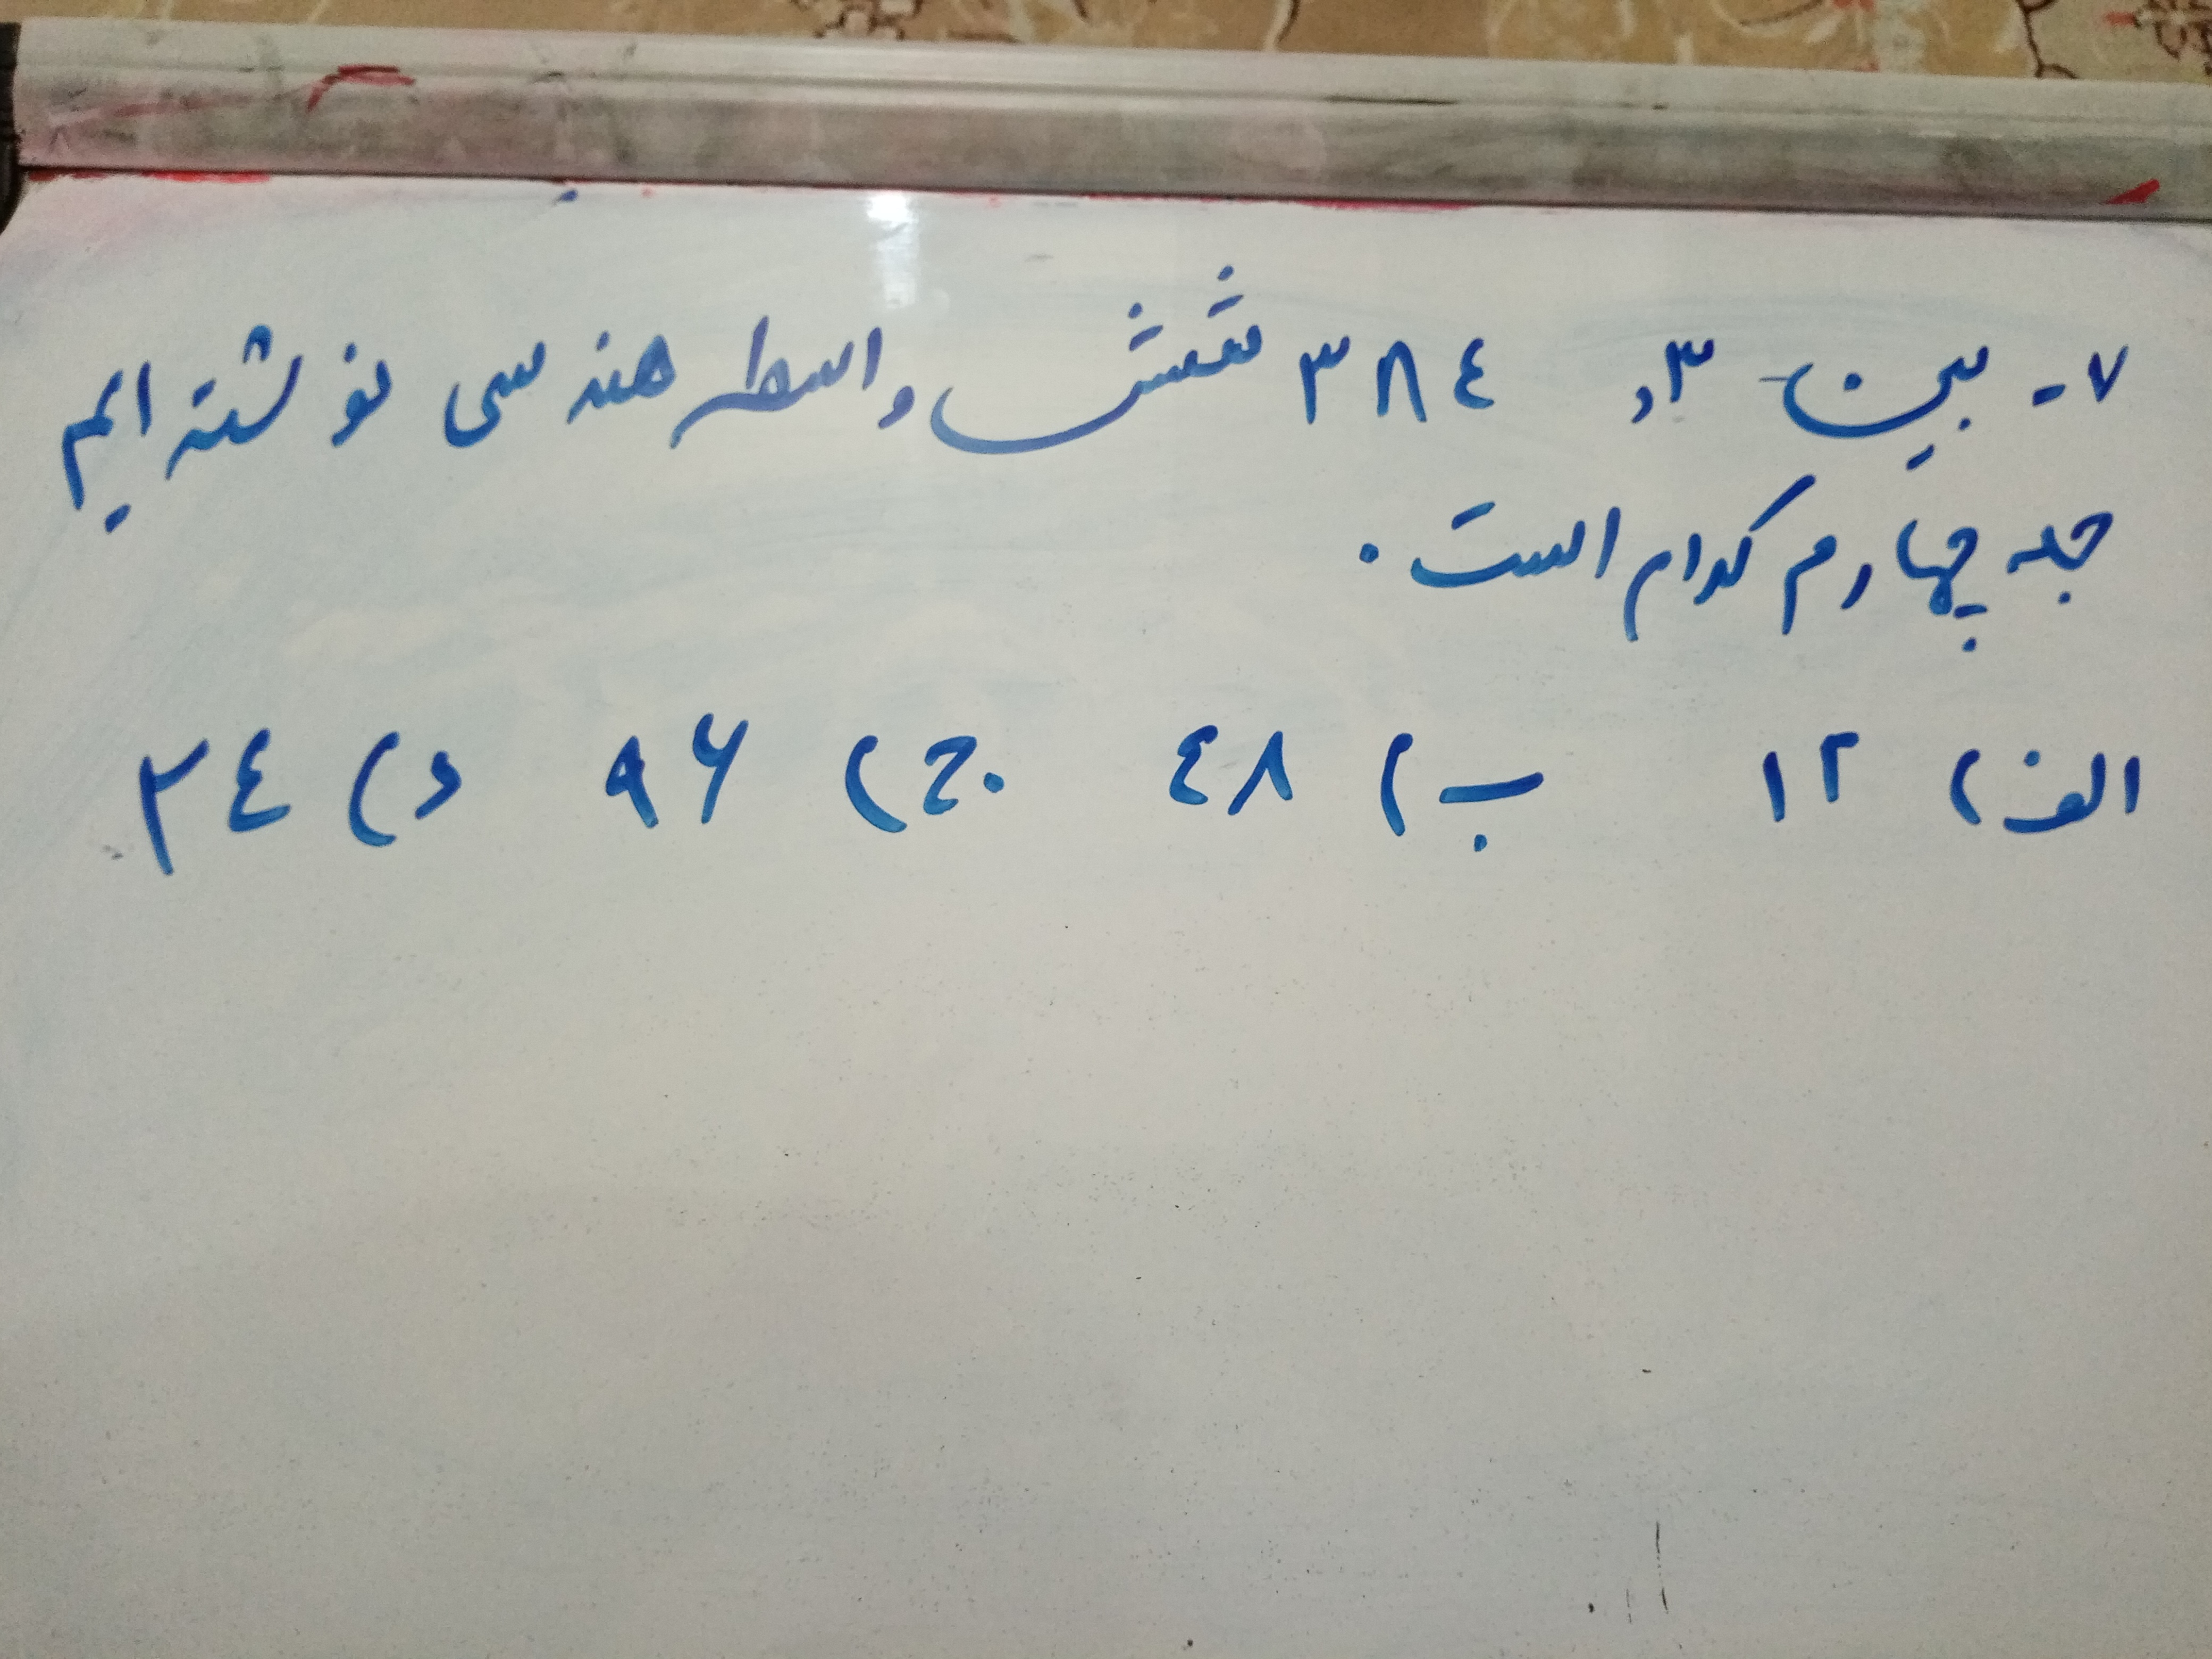 ۷- بین ۳ و ۳۸٤ شش واسطه هندسی نوشته ایم
جمله چهارم کدام است.
الف) ۱۲ ب) ٤۸ ج) ۹۶ د) ۲٤